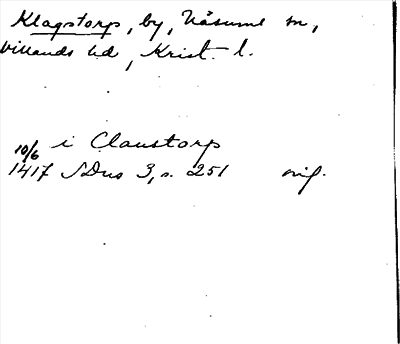 Klagstorp, by, Nåsums sn,
Villands hd, Krist. l.
10/6 i Claustorp
1417 SDns 3, s. 251 orig.